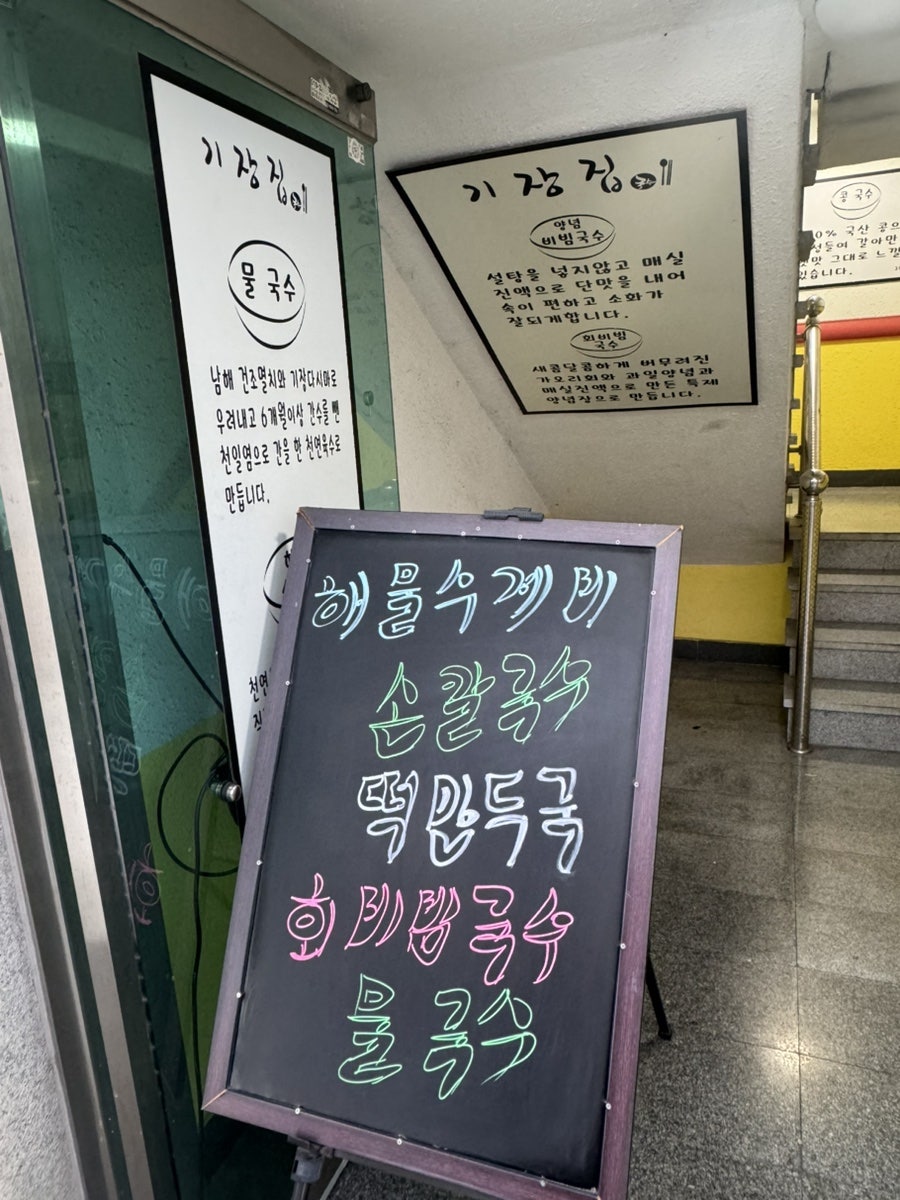 기장집에
물 국수
남해 건조멸치와 기장다시마로
우려내고 6개월이상 간수를 뺀
천일염으로 간을 한 천연육수로
만듭니다.
천연
진
기장집
양념
비빔국수
설탕을 넣지않고 매실
진액으로 단맛을 내어
속이 편하고 소화가
잘되게합니다.
회비빔
국수
새콤달콤하게 버무려진
가오리회와 과일양념과
매실진액으로 만든 특제
양념장으로 만듭니다.
콩 국수
0% 국산 콩으
성들여 갈아만
맛 그대로 느낄
있습니다.
해물수제비
손칼국수
떡만두국
회비빔국수
물국수